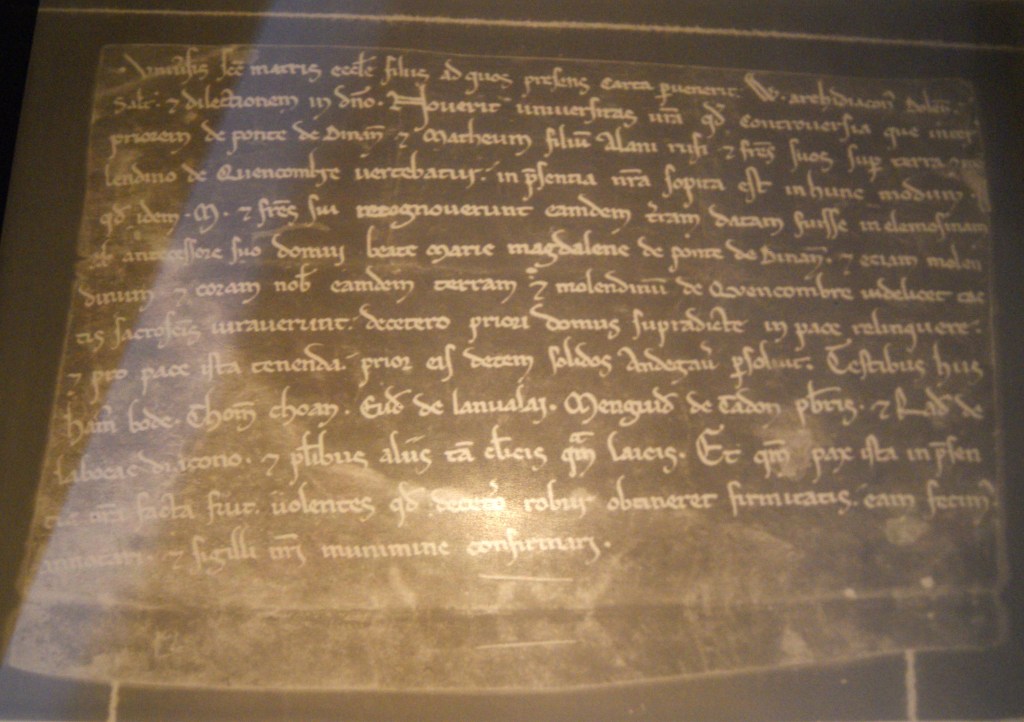 Univ̄sis sc̄e matris eccl̄e filiis ad quos presens carta pervenerit. W. archidiacon̄
Salt̄. ⁊ dilectionem in dn̄o. Noverit universitas nr̄a qd̄ controversia que inter
priorem de ponte de Dinan̄ ⁊ Matheum filiū Alani rufi ⁊ fr̄es suos sup̄ terra ⁊
lendino de Quencombre vertebatur. in p̄sentia nr̄a sopita est in hunc modum.
qd̄ idem .M. ⁊ fr̄es sui recognoverunt eamdem t̄ram datam fuisse in elemosinam
ab antecessore suo domui beate Marie magdalene de ponte de Dinan̄. ⁊ etiam molen
dinum ⁊ coram nob̄ eamdem terram ⁊ molendinū de Quencombre videlicet tac
tis sacrosc̄is iuraverunt. decetero priori domus supradicte in pace relinquere.
⁊ pro pace ista tenenda. prior eis decem solidos Andegav̄ p̄solvit. Testibus hiis
ham̄ bode. Thom̄ choan. Eud̄ de lanvalai. Menguid̄ de Tadon pb̄ris. ⁊ Rad̄ de
diacono. ⁊ pl̄ibus aliis tā cl̄icis qm̄ laicis. Et qm̄ pax ista in p̄sen
tia nr̄a facta fuit. volentes qd̄ decetero robur obtineret firmitatis. eam fecim̄
annotari ⁊ sigilli nr̄i munimine confirmari.